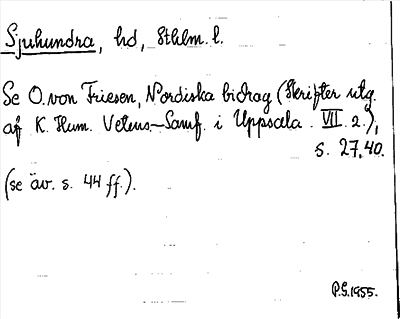 Sjuhundra, hd, Sthlm. l.
Se O. von Friesen, Nordiska bidrag (Skrifter utg.
af K. Hum. Vetens-Samf. i Uppsala. VII. 2.),
s. 27, 40.
(se äv. s. 44 ff.).
P.G. 1955.